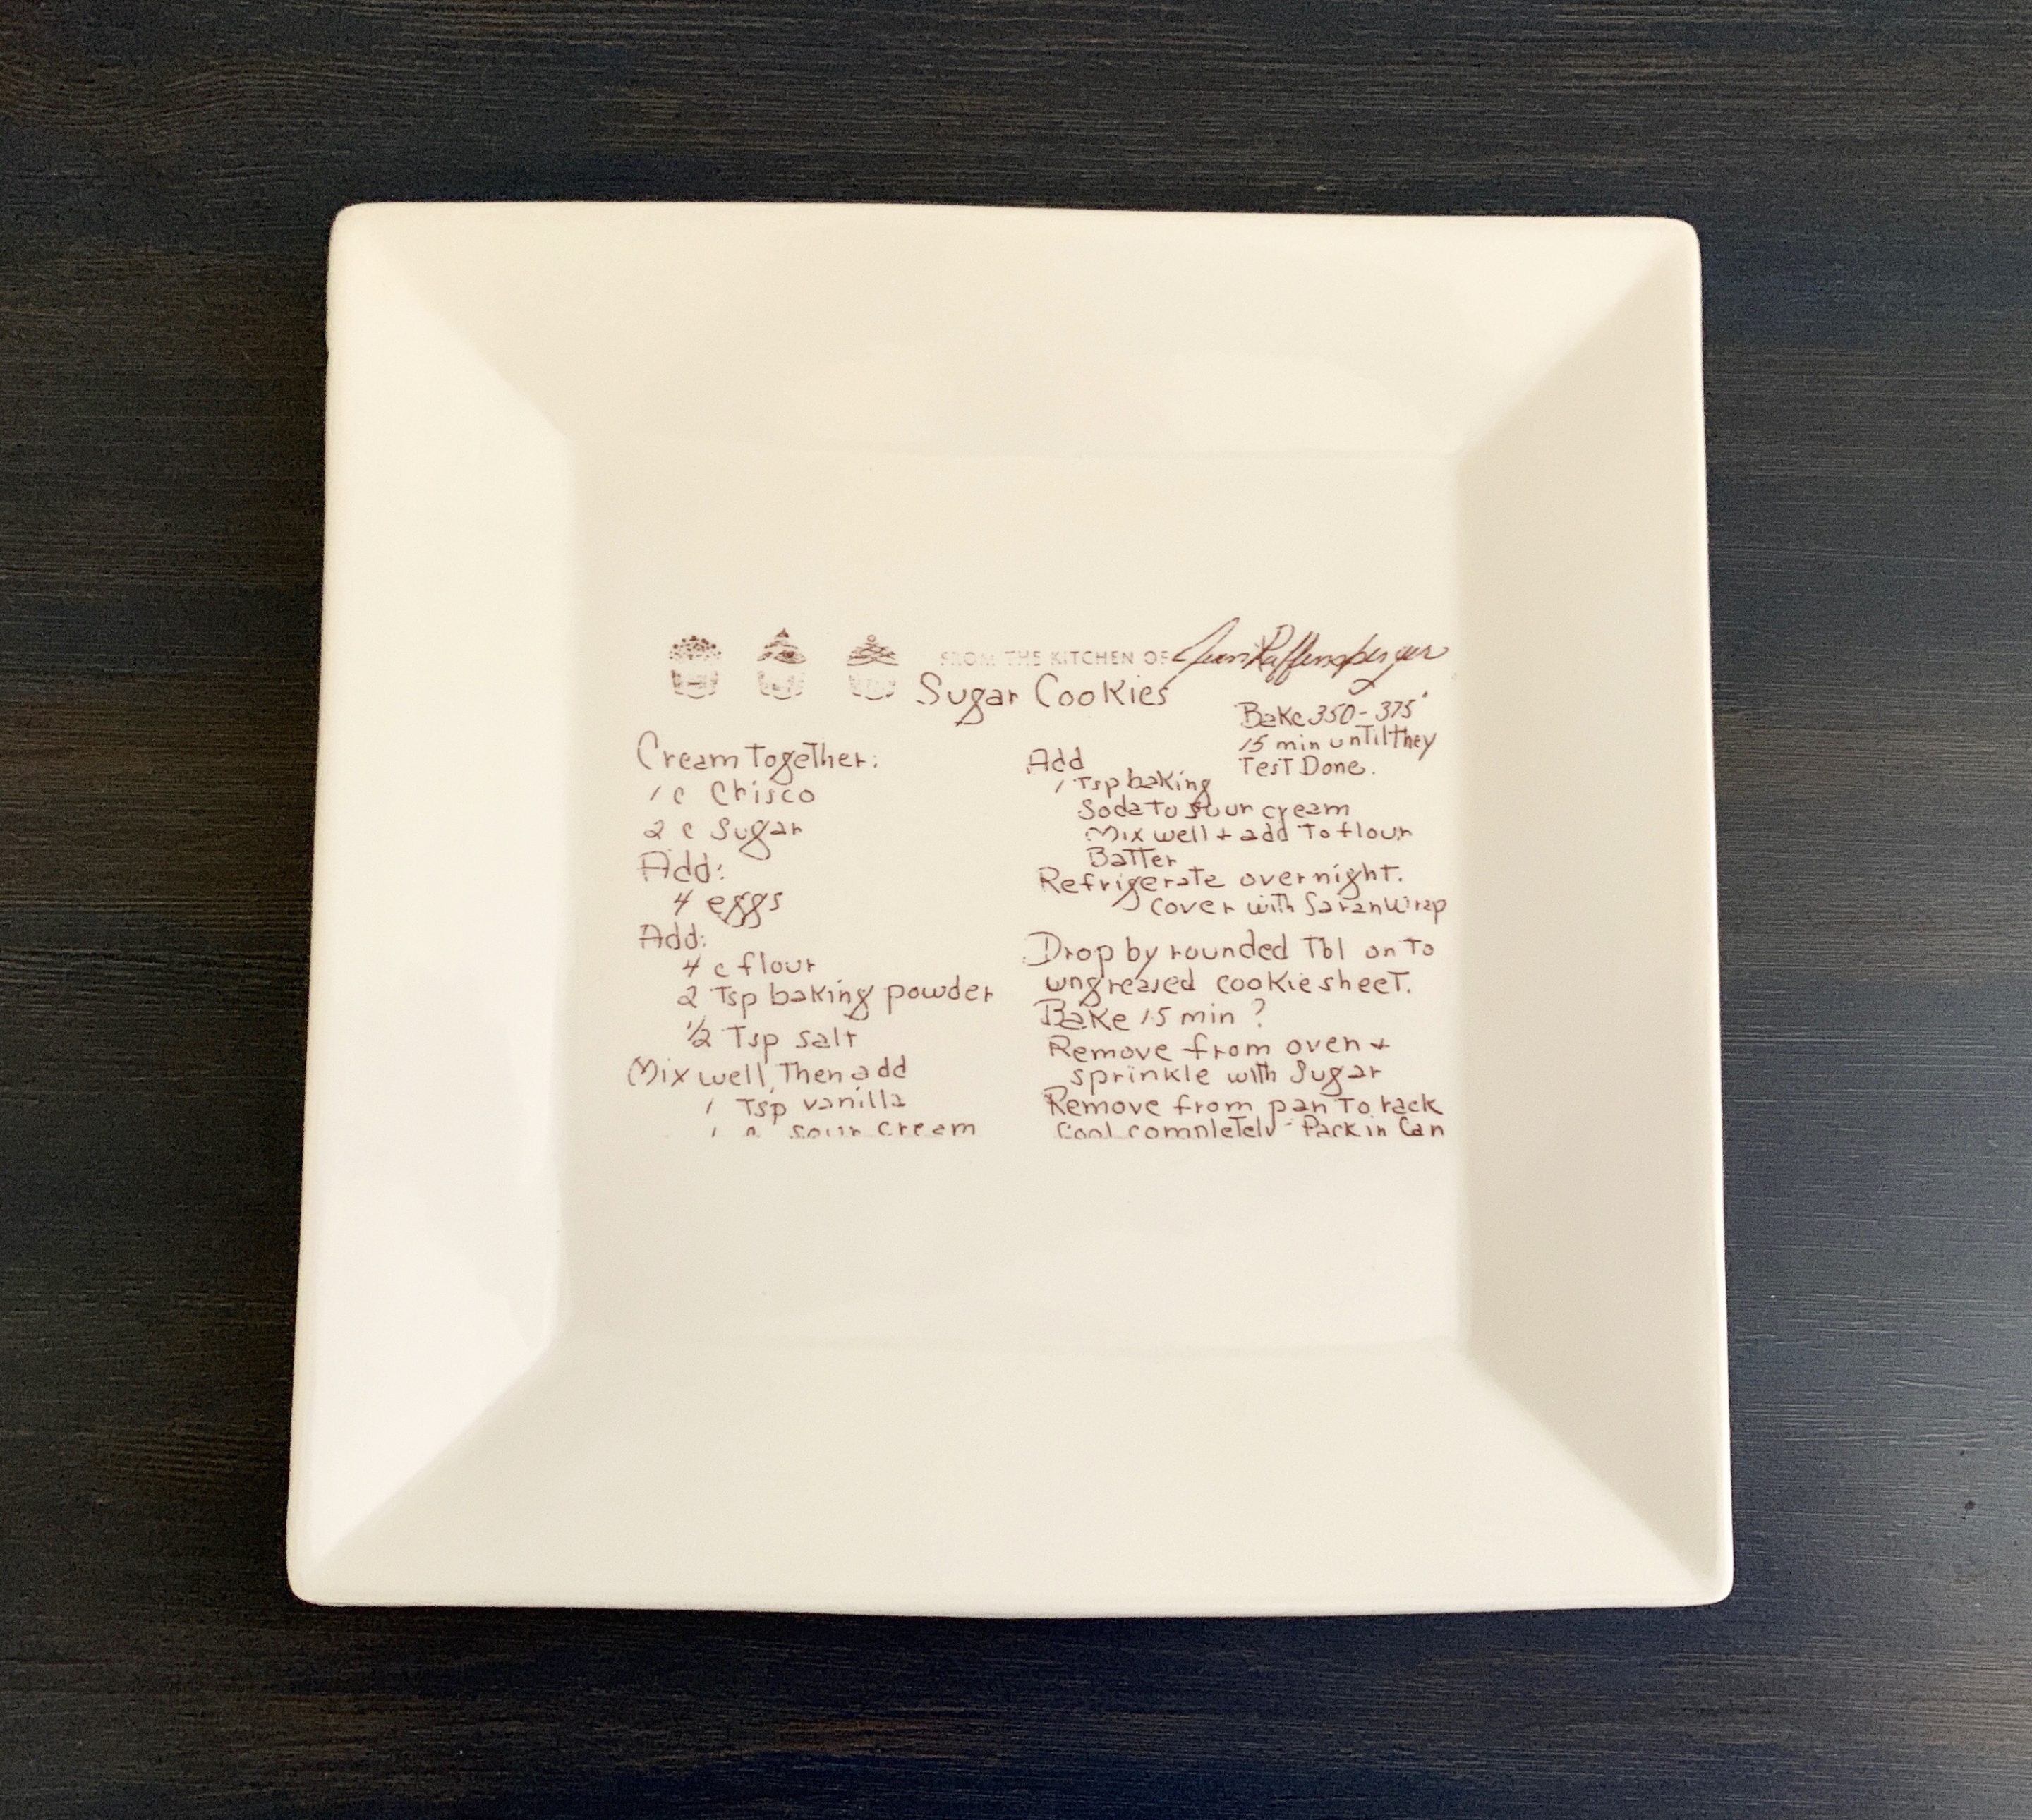 FROM THE KITCHEN OF Jean Raffensperger
Sugar Cookies
Bake 350-375°
15 min until they
Test Done.
Cream together:
1 c Crisco
2 c Sugar
Add:
4 eggs
Add:
4 c flour
2 Tsp baking powder
1/2 Tsp salt
Mix well, Then add
1 Tsp vanilla
1 c sour cream
Add
1 Tsp baking
Soda to sour cream
Mix well + add to flour
Batter
Refrigerate overnight.
cover with Saran Wrap
Drop by rounded Tbl on to
ungreased cookie sheet.
Bake 15 min ?
Remove from oven +
sprinkle with Sugar
Remove from pan To rack
Cool completely - Pack in Can